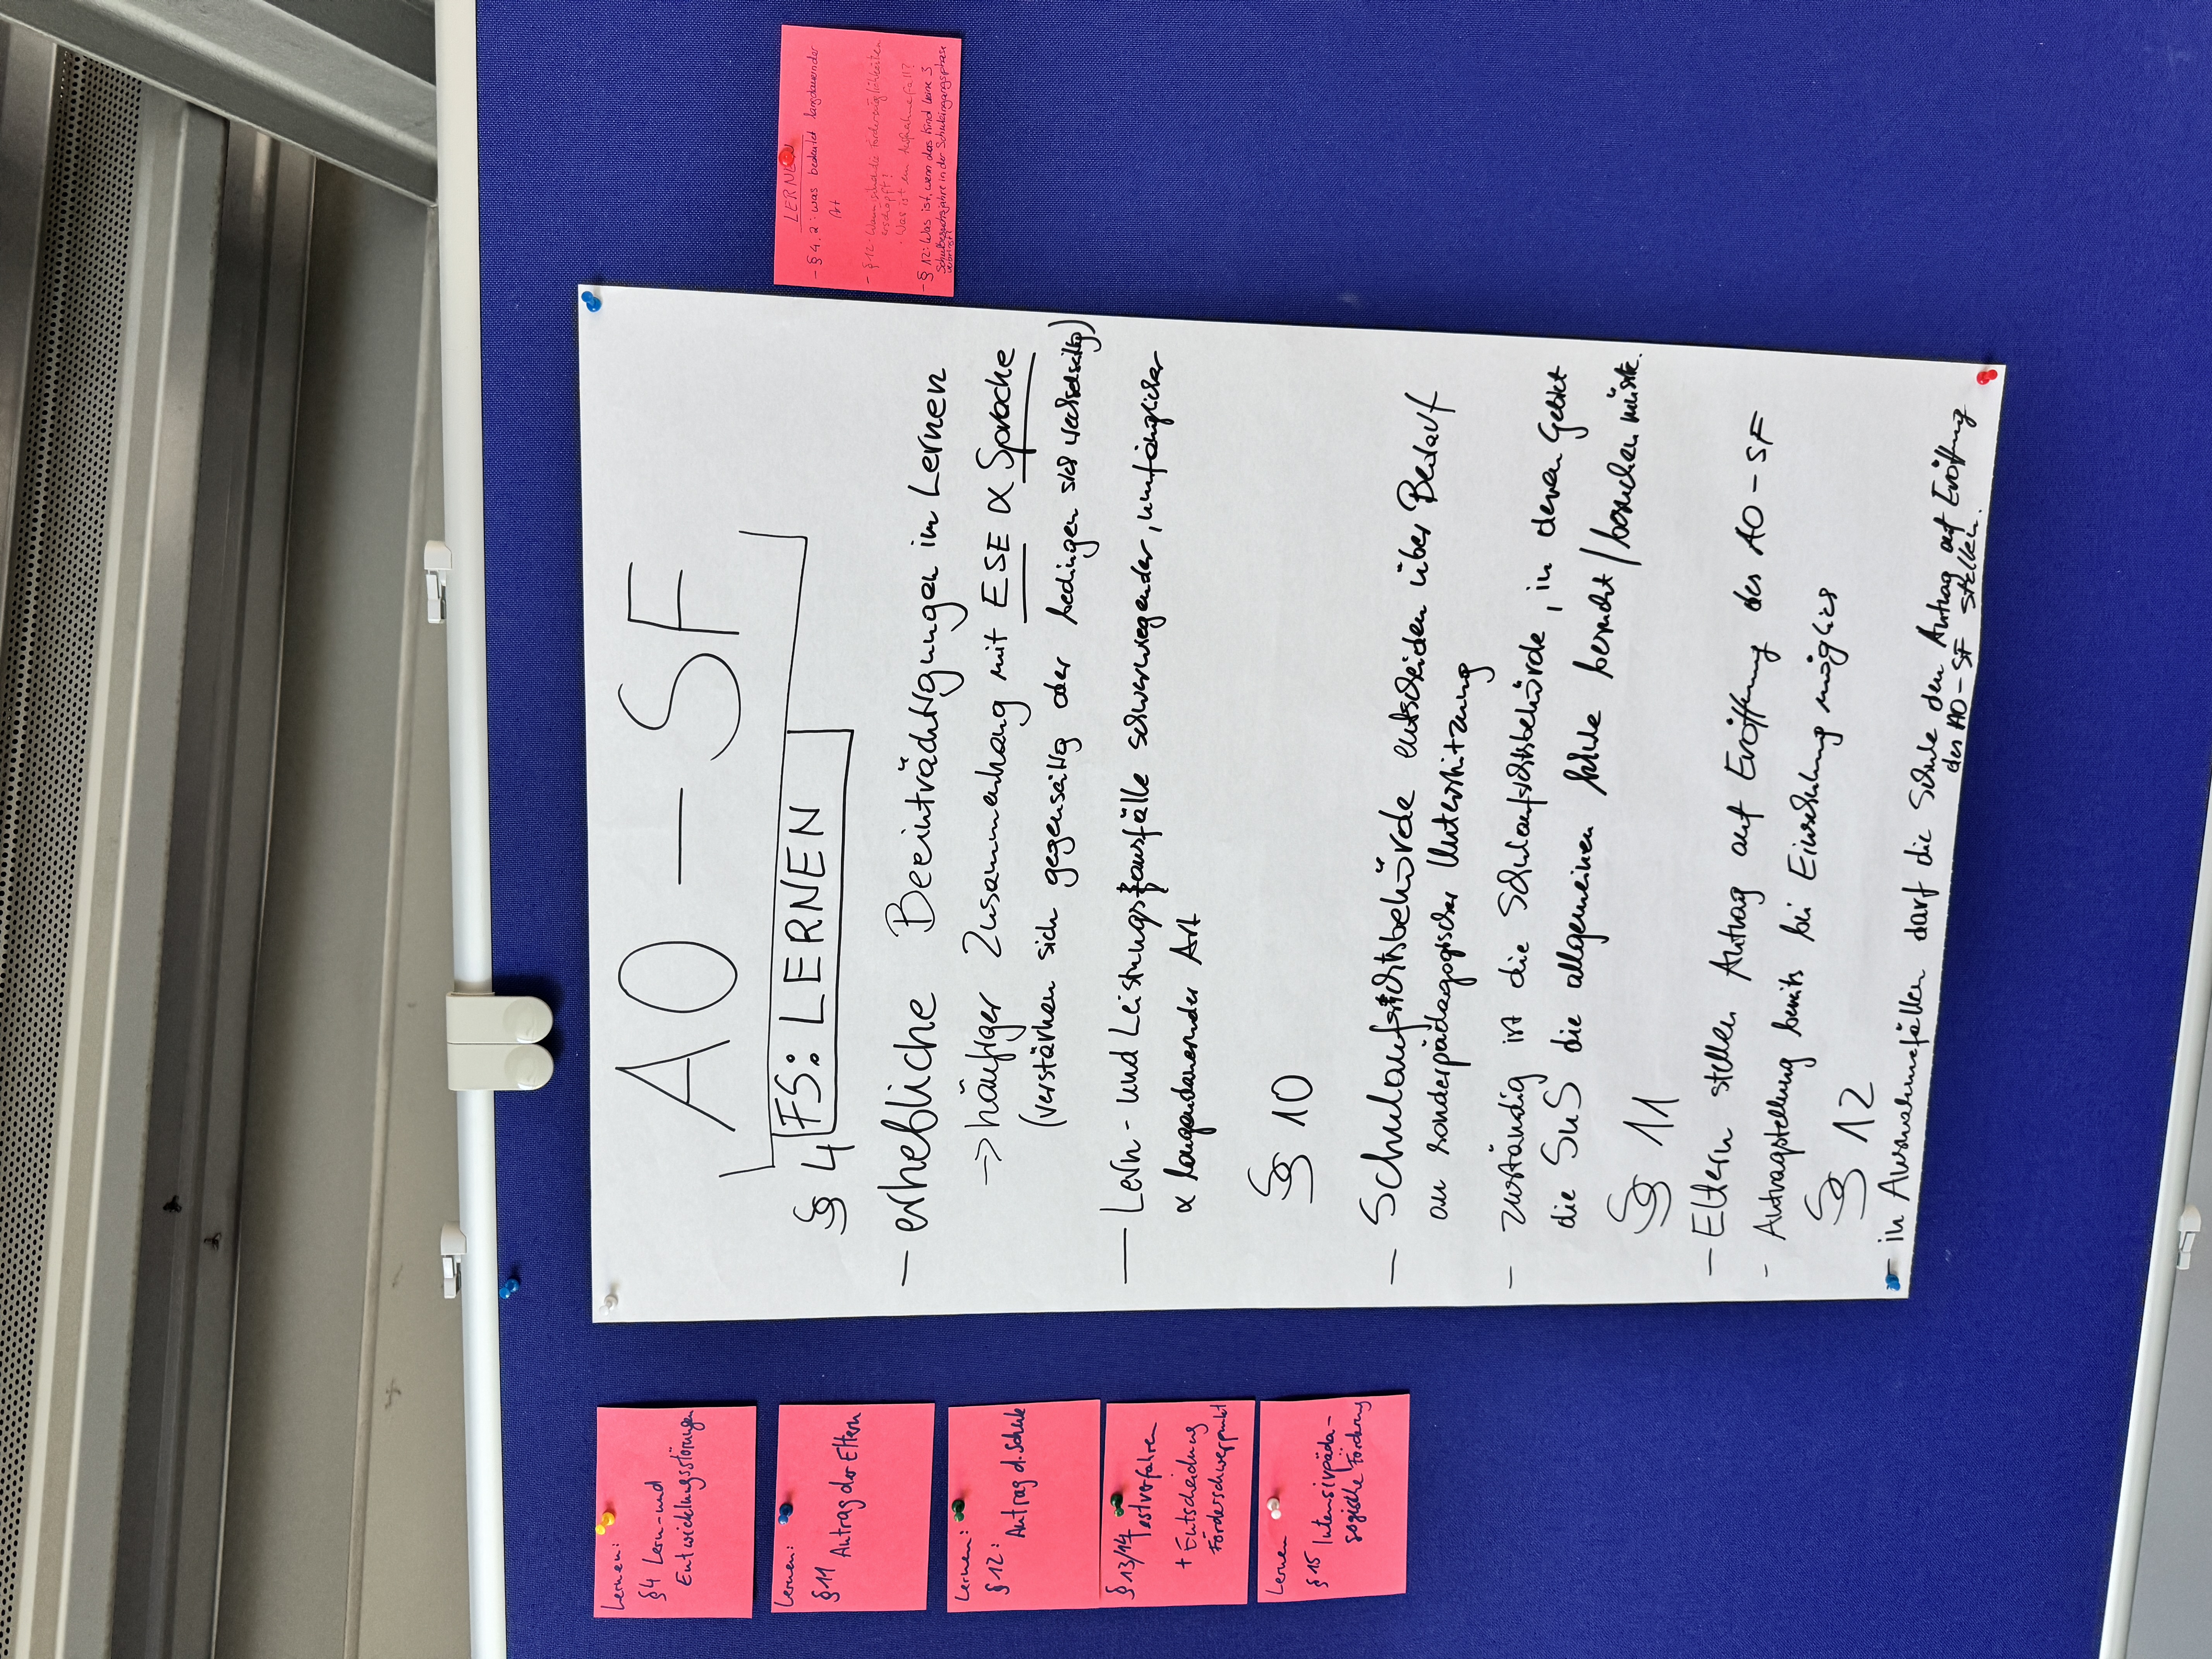 AO-SF
§ 4 FS: LERNEN
- erhebliche Beeinträchtigungen im Lernen
-> häufiger Zusammenhang mit ESE & Sprache
(verstärken sich gegenseitig oder bedingen sich wechselseitig)
- Lern- und Leistungsausfälle schwerwiegender, umfänglicher
& langandauernder Art
§ 10
- Schulaufsichtsbehörde entscheiden über Bedarf
an sonderpädagogischer Unterstützung
- zuständig ist die Schulaufsichtsbehörde, in deren Gebiet
die SuS die allgemeinen Schule besucht / besuchen müsste.
§ 11
- Eltern stellen Antrag auf Eröffnung des AO-SF
- Antragstellung bereits bei Einschulung möglich
§ 12
- in Ausnahmefällen darf die Schule den Antrag auf Eröffnung
des AO-SF stellen.
Lernen:
§4 Lern- und
Entwicklungsstörungen
Lernen:
§11 Antrag der Eltern
Lernen:
§12: Antrag d. Schule
§13/14 Testverfahren
+ Entscheidung
Förderschwerpunkt
Lernen
§15 Intensivpäda-
gogische Förderung
LERNEN
- § 4.2: was bedeutet langdauernder
Art
- §12: Wann sind die Fördermöglichkeiten
erschöpft?
- Was ist ein Ausnahmefall?
- § 12: Was ist, wenn das Kind keine 3
Schulbesuchsjahre in der Schuleingangsphase
verbringt